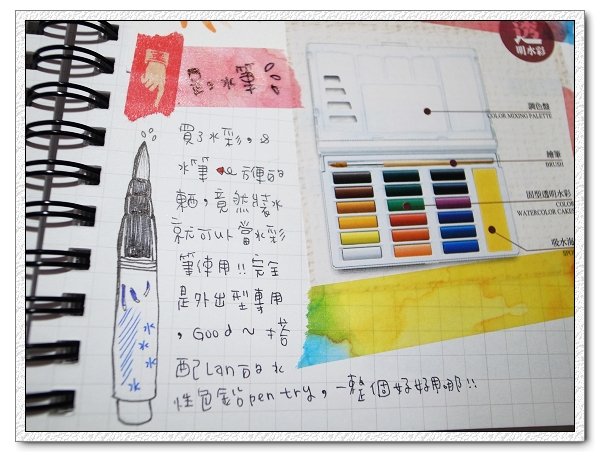 水筆
買了水彩,&
水筆 方便的
東西,竟然裝水
就可以當水彩
筆使用!!完全
是外出型專用
,Good~搭
配Lan的水
性色鉛pen try,一整個好好用哪!!
水
水
水
水
透
明水彩
調色盤
COLOR MIXING PALETTE
繪筆
BRUSH
固型透明水彩
COLOR
WATERCOLOR CAKES
吸水海
SPO